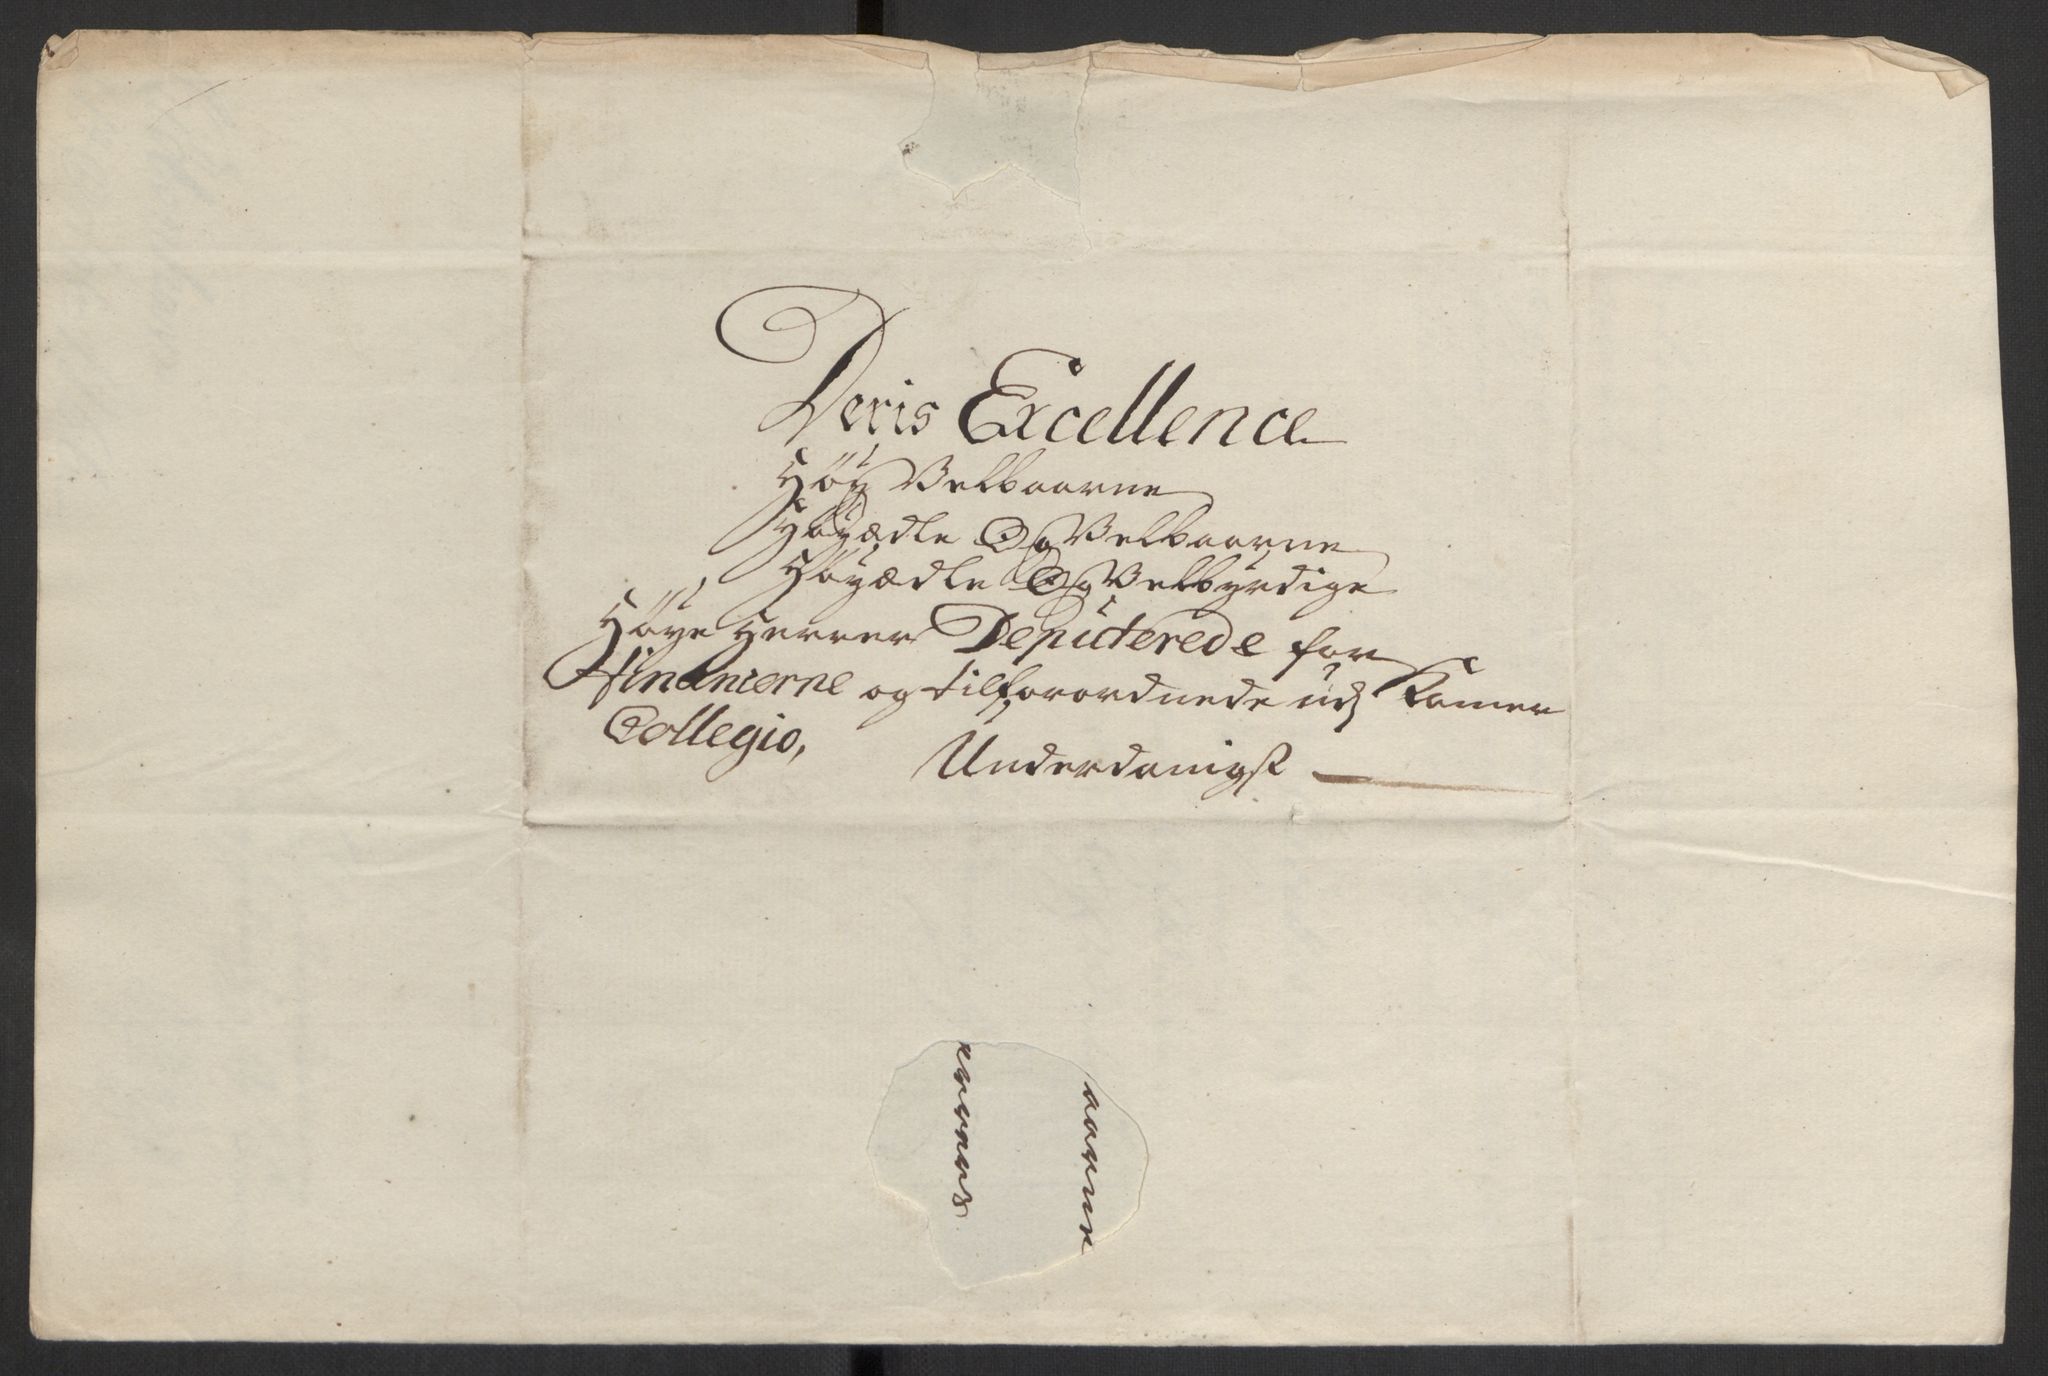 Deris Excellence
Høy Velbaarne
Høyædle Og Velbaarne
Høyædle Og Velbyrdige
Høye Herrer Deputerede for
Financerne og tilforordnede udj Kamer
Collegio,
Underdanigst
aarne